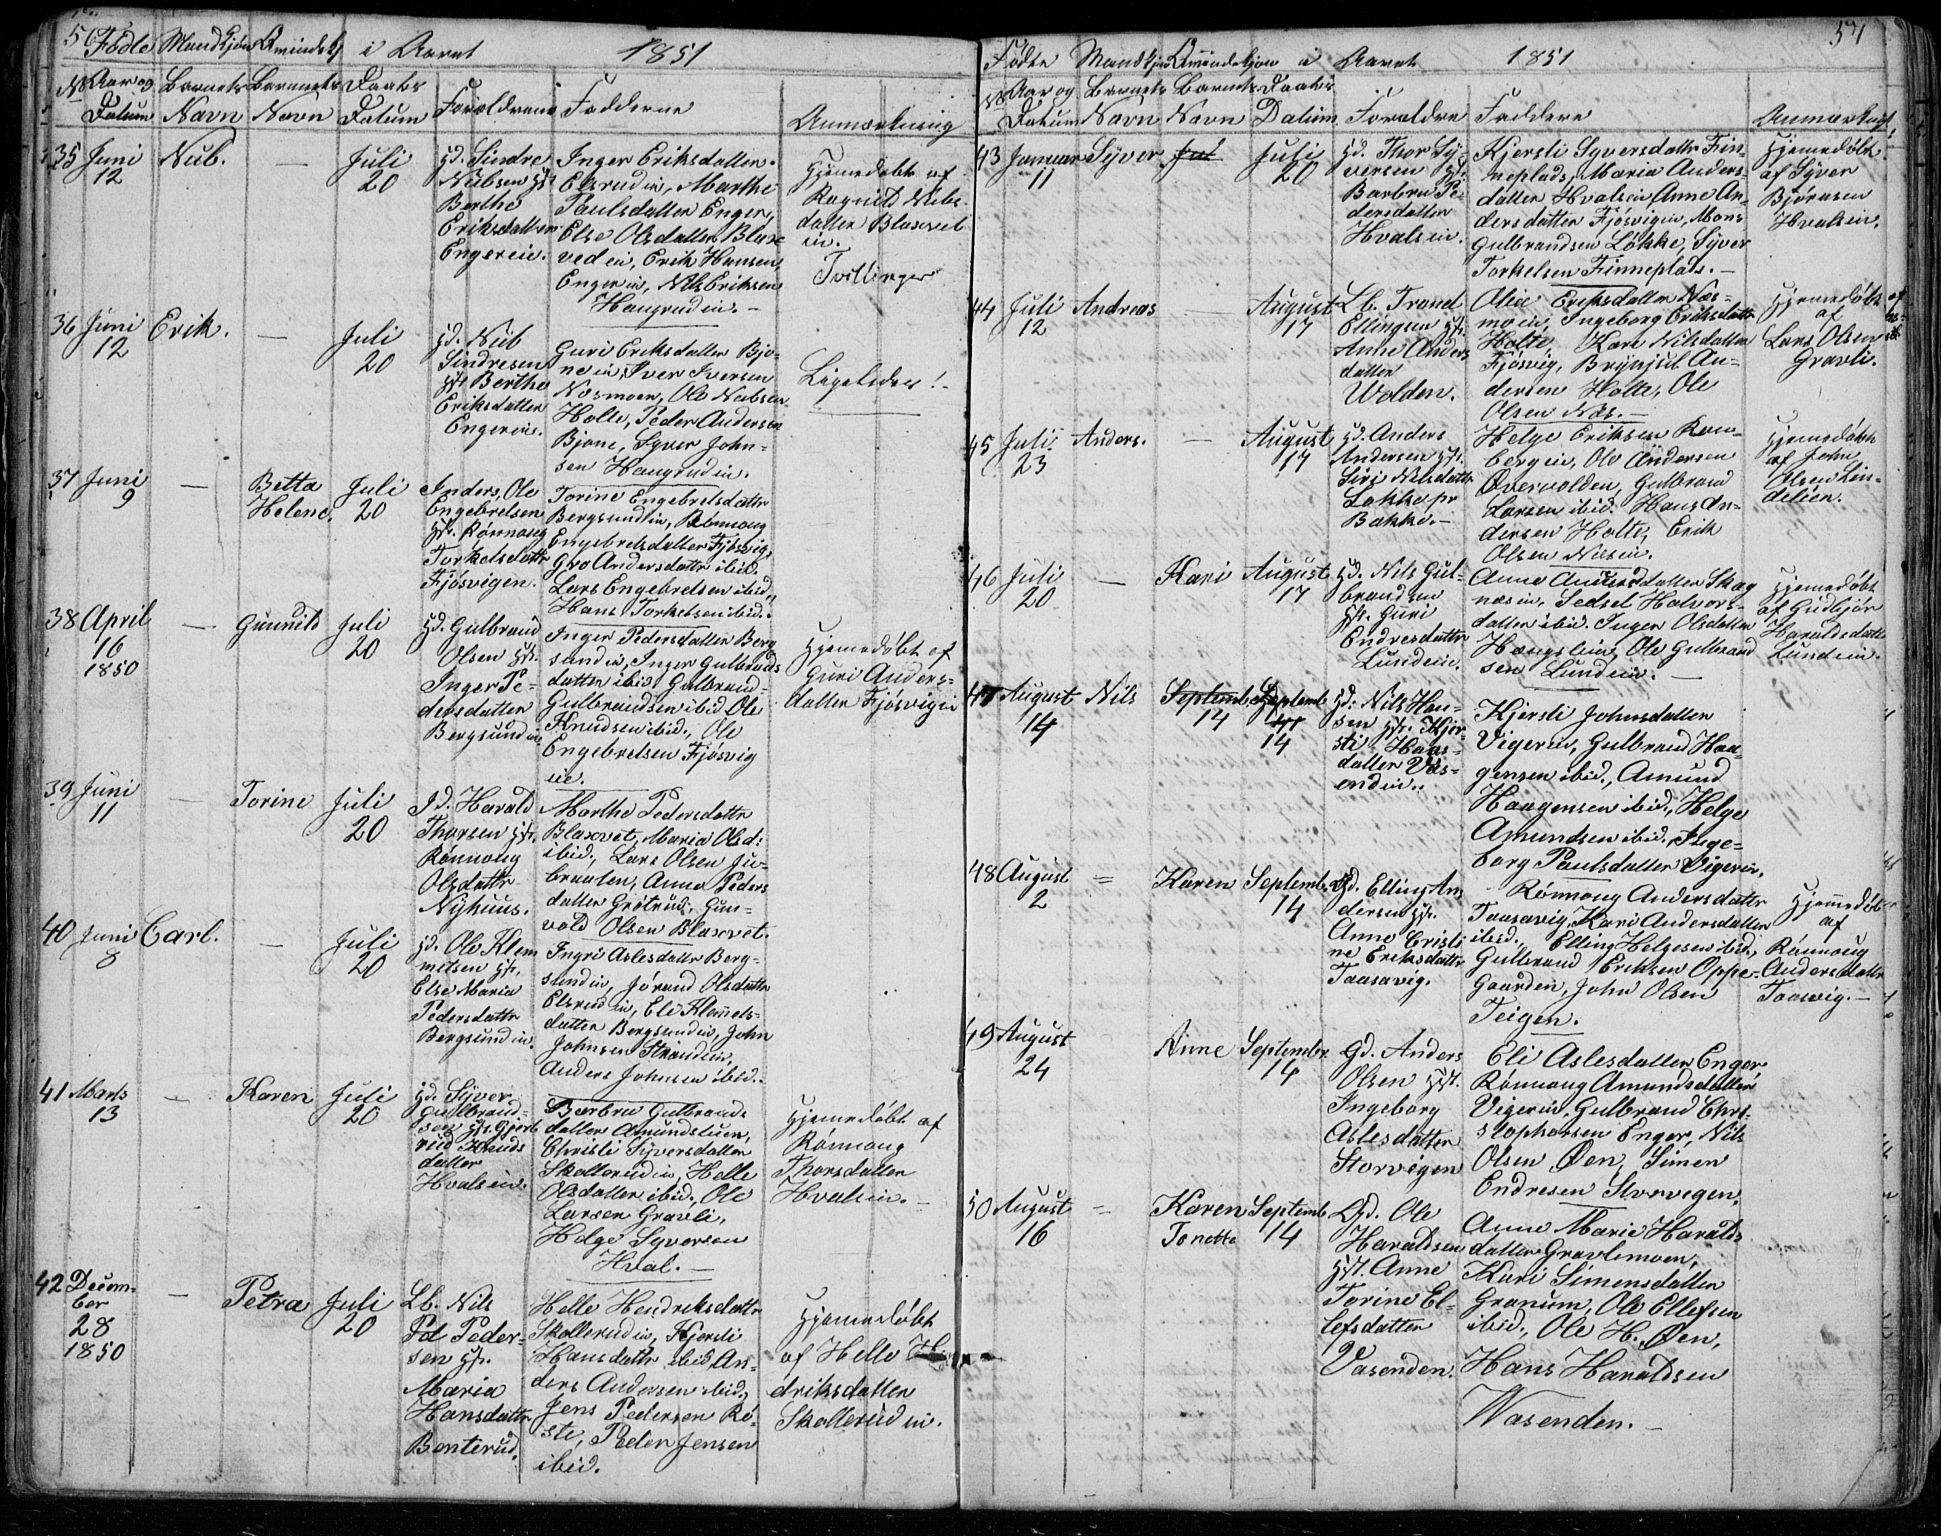 56 Födte Mandkjön Qvindekj i Aaret 1851
No Aar og Datum
Barnets Navn
Barnets Navn
Daabs Datum
Forældrene
Fadderne
Anmærkning
35 Juni 12
Nub.
—
Juli 20
Gd. Sindre
Nubsen Hst.
Berthe
Eriksdatter
Engereie.
Inger Eriksdatter
Elsrudei, Marthe
Paulsdatter Enger,
Else Olsdatter Blaxe
vedei, Erik Hansen
Engerei, Nils Eriksen
Haugrudei. —
Hjemedöbt af
Ragnild Nubs
datter Blaxvet
ei.
Tvillinger
36 Juni 12
Erik.
—
Juli 20
Gd. Nub
Sindresen
Hst. Berthe
Eriksdatter
Engereie.
Guri Eriksdatter Bjo-
neei, Iver Iversen
Næsmoen, Ole Nubsen
Holte, Peder Andersen
Bjone, Syver John-
sen Haugrudei.
Ligeledes! -
37 Juni 9
—
Betta
Helene.
Juli 20
Inders. Ole
Engebretsen
Hst. Rönnoug
Torkelsdattr
Fjösvigen.
Torine Engebretsdattr
Bergsundei, Rönnoug
Engebretsdatter Fjösvig,
Gro Andersdattr ibid.
Lars Engebretsen ibid.,
Hans Torkelsen ibid.
38 April 16 1850
—
Gunnild
Juli 20
Gd. Gulbrand
Olsen Hst.
Inger Pe-
dersdatter
Bergsundei
Inger Pedersdatter Berg
sundei, Inger Gulbrands
datter ibid. Gulbrand
Gulbrandsen ibid. Ole
Knudsen ibid., Ole
Engebretsen Fjösvig
eie.
Hjemedöbt af
Guri Anders-
datter Fjösvigei
39 Juni 11
—
Torine
Juli 20
Id. Harald
Thorsen Hst.
Rönnoug
Olsdattr
Nyhuus.
Marthe Pedersdattr
Blaxvet, Maria Olsd:
ibid., Lars Olsen Ju-
braaten, Anne Peders
datter Grötrud, Gun-
vold Olsen Blaxvet.
40 Juni 8
Carl.
—
Juli 20
Gd. Ole Klem
metsen Hst.
Else Maria
Pedersdattr
Bergsundei.
Ingri Aslesdattr Berg-
sundei, Jörand Olsdattr
Elsrudei, Eli Klemets-
datter Bergsundei, John
Johnsen Strandei,
Anders Johnsen ibid.
41 Marts 13
—
Karen
Juli 20
Gd. Syver
Gulbrand-
sen Hst. Gjert
rud Knuds
datter
Hvalsei.
Barbra Gulbrands
datter Amundstuen,
Christi Syversdatter
Skollerudei, Helle
Olsdatter ibid., Ole
Larsen Gravli,
Helge Syversen
Hval. —
Hjemedöbt af
Rönnoug
Thorsdatter
Hvalsei. —
42 Decem-
ber
28
1850
—
Petra
Juli 20
Lb. Nils
Pd Peder-
sen Hst.
Maria
Hansdattr
Benterud.
Helle Hendriksdattr
Skollerudei, Kjersti
Hansdattr ibid. An-
ders Andersen ibid.,
Jens Pedersen Rö-
ste, Peder Jensen
ibid.
Hjemedöbt
af Helle
driksdatter
Skollerudei.
57
Födte Mandkjön Qvindekjön i Aaret 1851
No Aar og Datum
Barnets Navn
Barnets Navn
Daabs Datum
Forældre
Faddere
Anmærkng
43 Januar 11
Syver
Juli 20
Gd. Thor Sy-
versen Hst.
Barbra Pe-
dersdatter
Hvalsei.
Kjersti Syversdattr Fin-
neplads, Maria Anders-
datter Hvalsei, Anne An-
dersdatter Fjösvigei, Mons
Gulbrandsen Lökke, Syver
Torkelsen Finneplads. —
Hjemedöbt
af Syver
Björnsen
Hvalsei.
44 Juli 12
Andreas
—
August 17
Lb. Trond
Ellingsen Hst.
Anne Anders
datter
Wolden.
Olia Eriksdatter Næs-
moei, Ingeborg Eriksdattr
Holte, Kari Nilsdatter
Fjösvig, Brynjul An-
dersen Holte, Ole
Olsen Næs. —
Hjemedöbt
af
Lars Olsen
Gravli.
45 Juli 23
Anders.
—
August 17
Gd. Anders
Andersen Hst.
Siri Nilsdattr
Lökke pr
Bakke. —
Helge Eriksen Ram-
bergei, Ole Andersen
Överwolden, Gulbrand
Larsen ibid. Hans An-
dersen Holte, Erik
Olsen Nilsei.
Hjemedöbt
af John
Olsen Lin-
delien.
46 Juli 20
—
Kari
August 17
Gd. Nils Gul-
brandsen
Hst. Guri
Endresdattr
Lundeie.
Anne Andersdatter Skag
næsei, Sedsel Halvors-
datter ibid. Inger Olsdatter
Haugslein, Ole Gulbrand
sen Lundei. —
Hjemedöbt
af Gudbjör
Haraldsdattr
Lundei.
47 August 14
Nils
Septembr 14
Septemb 14
Gd: Nils Han-
sen Hst. Kjer-
sti Hans-
datter Vas-
endei.
Kjersti Johnsdatter
Vigerei, Gulbrand Hau
gensen ibid., Amund
Haugensen ibid., Helge
Amundsen ibid., Inge-
borg Paulsdatter Vigerei.
48 August 2
=
Karen
Septembr 14
Gd. Elling An
dersen Hst.
Anne Cristi
ne Eriksdattr
Taasavig.
Rönnoug Andersdattr
Taasavig, Kari Andersdatter
ibid., Elling Helgesen ibid.,
Gulbrand Eriksen Oppe-
Gaarden, John Olsen
Teigen.
Hjemedöbt
af
Rönnoug
Andersdattr
Taasvig. —
49 August 24
Anne
Septembr. 14
Gd. Anders
Olsen Hst.
Ingeborg
Aslesdatter
Storvegen
Eli Aslesdatter Enger
Rönnoug Amundsdatter
Vigerei, Gulbrand Chri-
stophersen Enger, Nils
Olsen Öen, Simen
Endresen Storvegen.
50 August 16
=
Karen
Tonette
Septemb. 14
Gd. Ole
Haraldsen
Hst. Anne
Torine El-
lefsdatter
Vasenden.
Anne Marie Haralds
datter Gravlimoen,
Kari Simensdatter
Granum, Ole Ellefsen
ibid., Ole H. Öen,
Hans Haraldsen
Wasenden. —